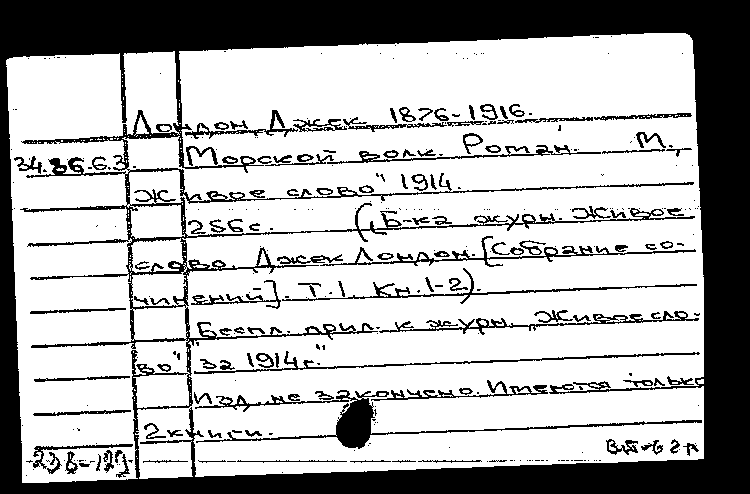 Лондон, Джек, 1876-1916.
34.36.6.3 Морской волк. Роман. М.,
"Живое слово", 1914.
256 с. ("Б-ка журн. Живое
слово. Джек Лондон. [Собрание со-
чинений]. Т.1. Кн.1-2).
Беспл. прил. к журн. "Живое сло-
во" за 1914 г."
Изд. не закончено. Имеются только
2 книги.